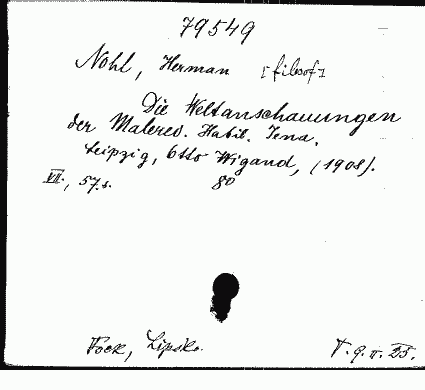 79549
Nohl, Herman [filosof]
Die Weltanschauungen
der Malerei. Habil. Jena.
Leipzig, Otto Wigand, (1908).
VII., 57 s. 80
Fock, Lipsko.